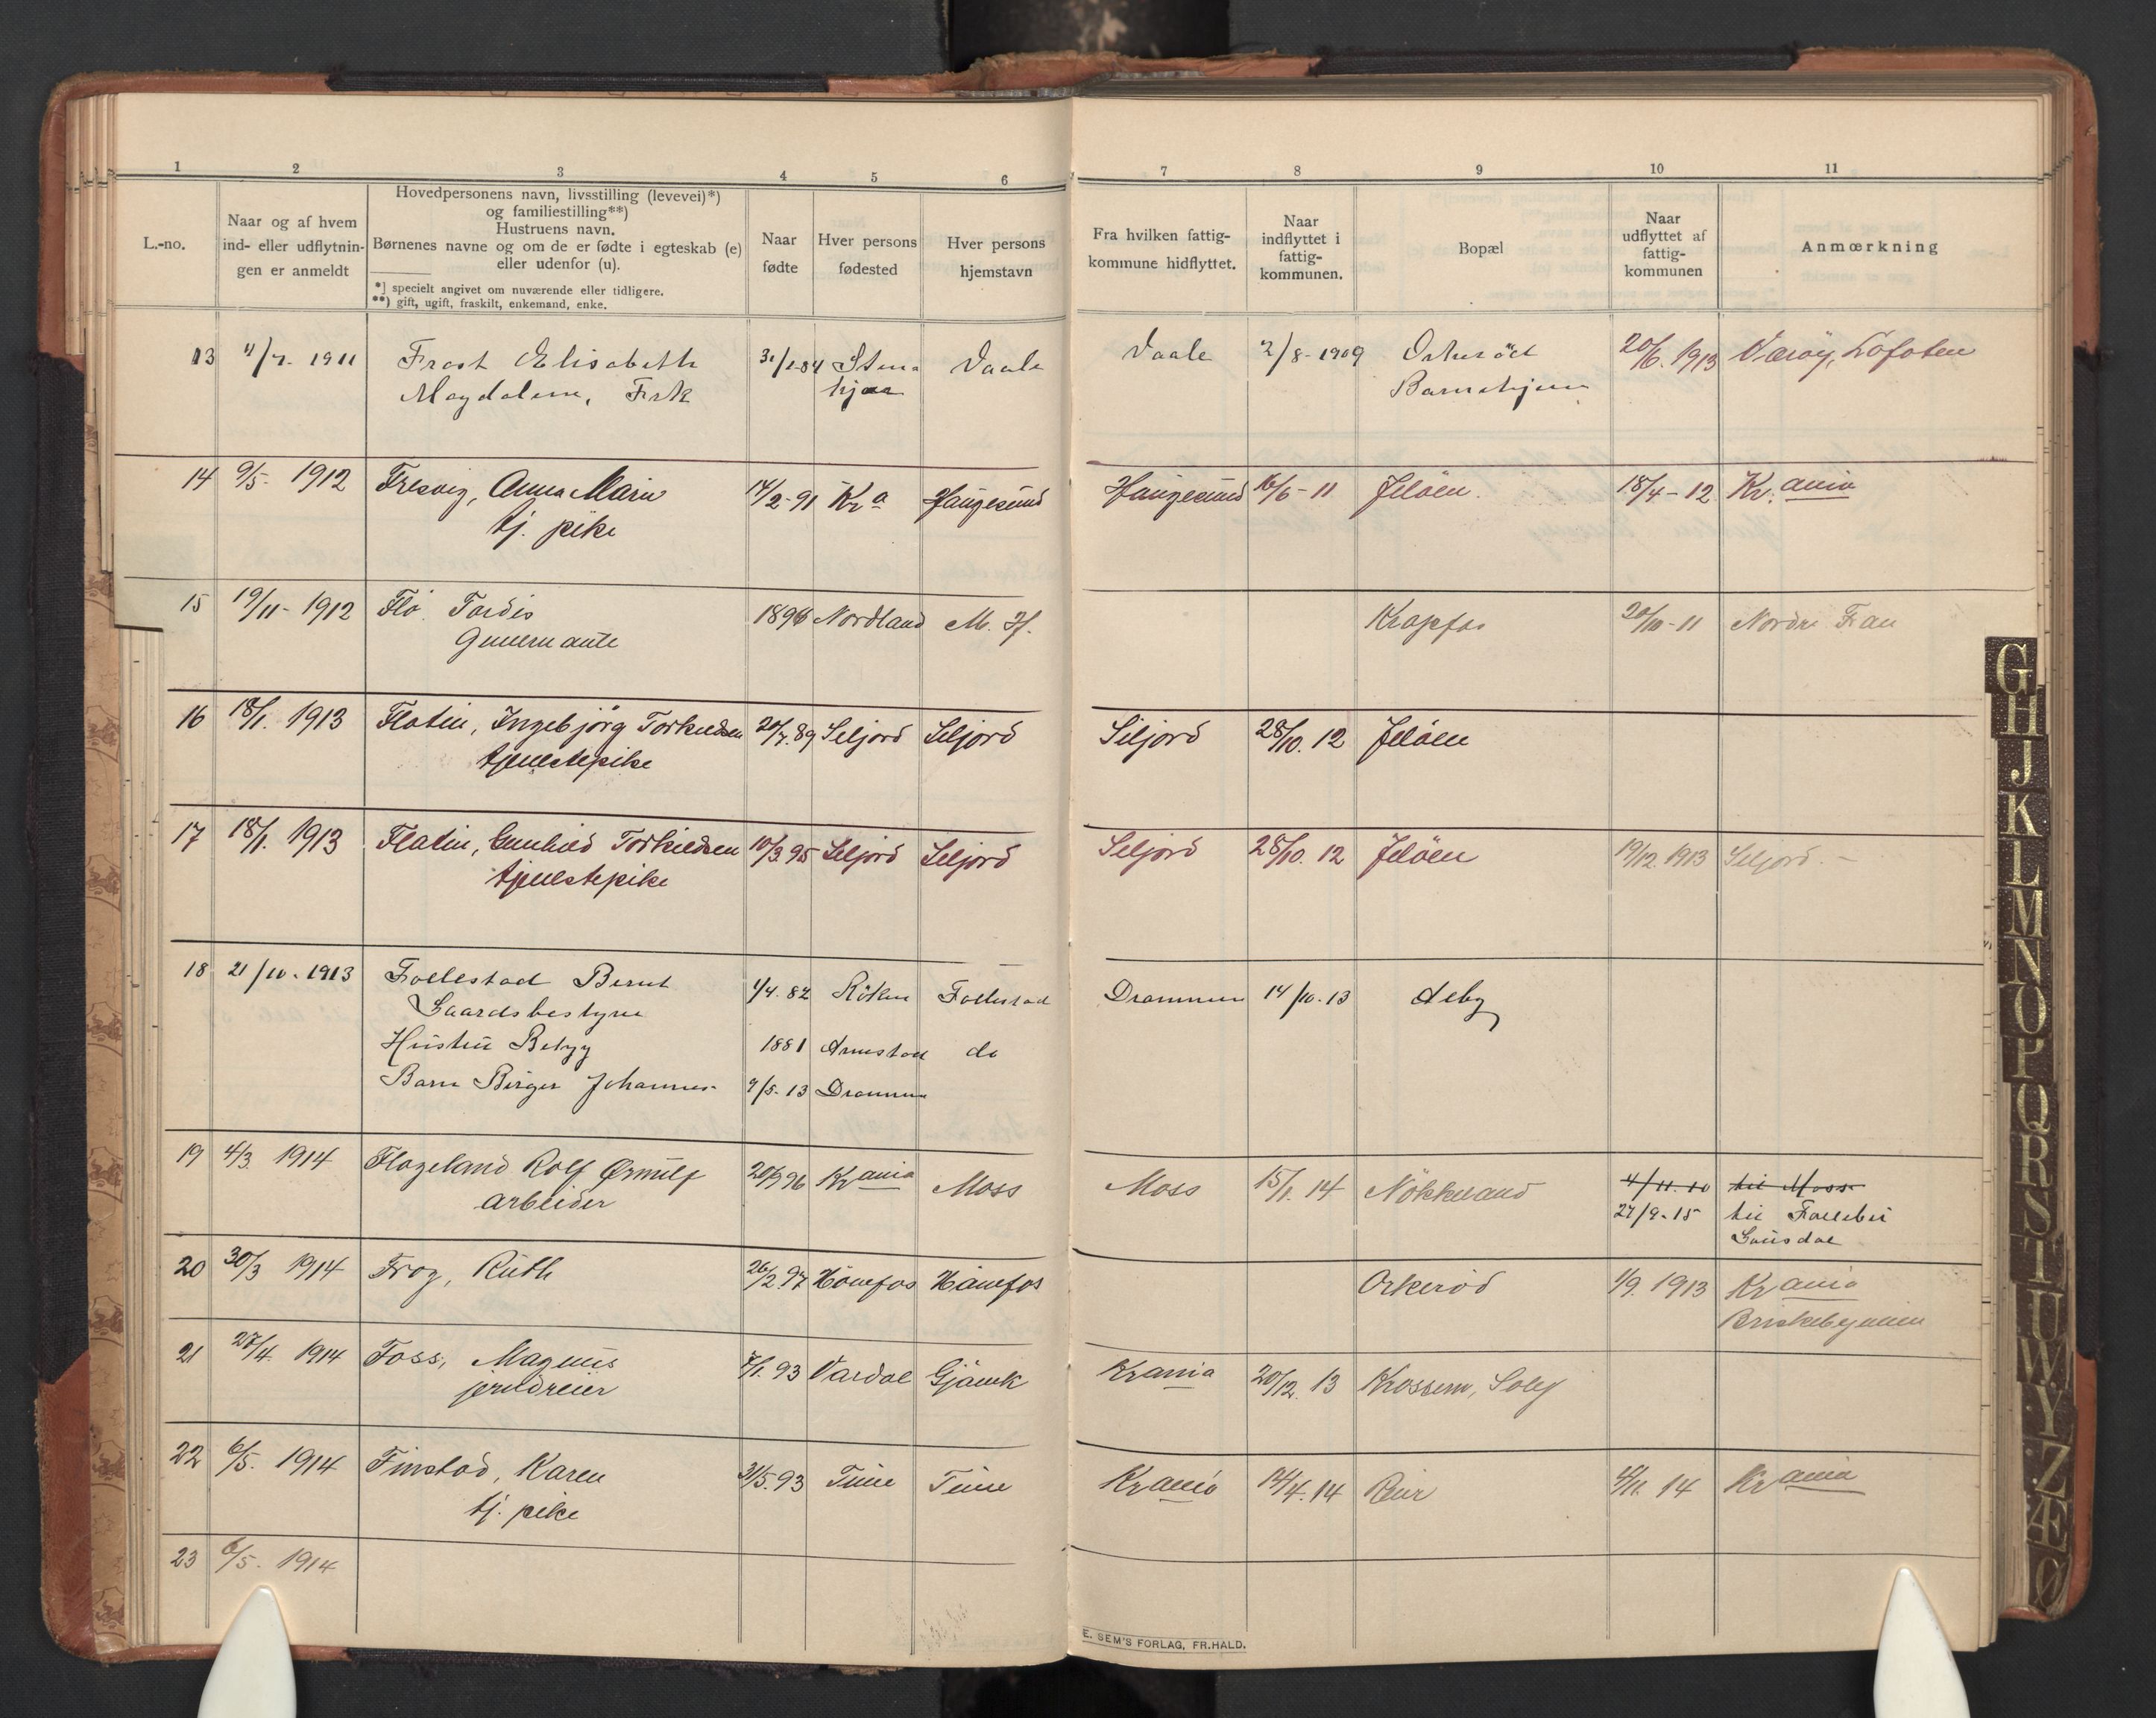 1 2 3 4 5 6 7 8 9 10 11
L.-no.
Naar og af hvem
ind- eller udflytnin-
gen er anmeldt
Hovedpersonens navn, livsstilling (levevei)*)
og familiestilling**)
Hustruens navn.
Børnenes navne og om de er fødte i egteskab (e)
eller udenfor (u).
*) specielt angivet om nuværende eller tidligere.
**) gift, ugift, fraskilt, enkemand, enke.
Naar
fødte
Hver persons
fødested
Hver persons
hjemstavn
Fra hvilken fattig-
kommune hidflyttet.
Naar
indflyttet i
fattig-
kommunen.
Bopæl
Naar
udflyttet af
fattig-
kommunen
Anmærkning
13 4/7. 1911 Frost Elisabeth 31/1-84 Sten- Vaale Vaale 2/8-1909 Orkerød 20/6. 1913 Værøy, Lofoten
Magdalene, Frk kjær Barnehjem
14 9/5- 1912 Fresvig, Anna Marie 14/2-91 Kra Haugesund Haugesund 16/6-11 Jeløen. 18/4-12 Kr.ania
tj. pike
15 19/11- 1912 Flø. Tordis 1896 Nordland M. H. Krapfos 20/10-11 Nordre Fron
Guvernante
16 18/1. 1913 Flatin, Ingebjörg Torkildsen 20/7.89 Seljord Seljord Seljord 28/10. 12 Jeløen
tjenestepike
17 18/1. 1913 Flatin, Gunhild Torkildsen 10/3.95 Seljord Seljord Seljord 28/10. 12 Jeløen 19/12. 1913 Seljord.-
tjenestepike
18 21/10.1913 Follestad Bernt 1/4.82 Röken Follestad Drammen 14/10.13 Alby
Gaardsbestyrer
Hustru Betzy 1881 do
Barn Birger Johannes 9/5.13 Drammen
19 4/3. 1914 Flageland Rolf Ørnulf 20/9 96 Krania Moss Moss 15/1. 14 Nökkeland 4/11.10 til Moss
arbeider 27/9.15 til Follebu
Gausdal
20 30/3 1914 Frog, Ruth 26/2.97 Hönefos Hönefos Orkerød 1/9. 1913 Krania
Briskebyveien
21 27/4. 1914 Foss, Magnus 7/1.93 Vardal Gjövik Krania 20/12. 13 Krossern, Solly
22 6/5. 1914 Finstad, Karen 31/5.93 Time Time Krania 14/4.14 Rier 4/11. 14 Krania
tj. pike
23 6/5. 1914
E. SEM'S FORLAG, FR.HALD.
G
H
J
K
L
M
N
O
P
Q
R
S
T
U
W
Y
Z
Æ
Ø